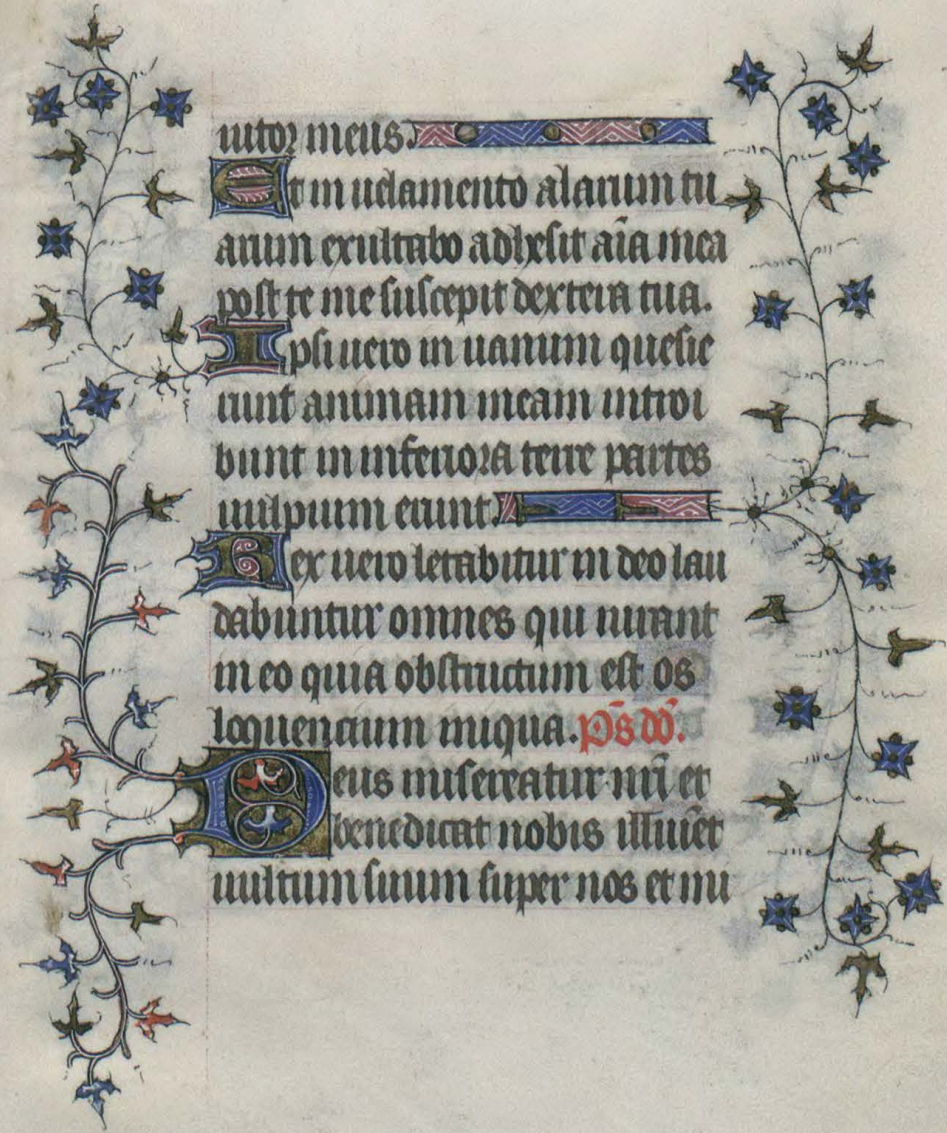 iutor meus.
Et in uelamento alarum tu
arum exultabo adhesit aīa mea
post te me suscepit dextera tua.
Ipsi uero in uanum quesie
runt animam meam introi
bunt in inferiora terre partes
uulpium erunt.
Rex uero letabitur in deo lau
dabuntur omnes qui iurant
in eo quia obstructum est os
loquencium iniqua. p̄s dd̄.
Deus misereatur nr̄i et
benedicat nobis illuīet
uultum suum super nos et mi